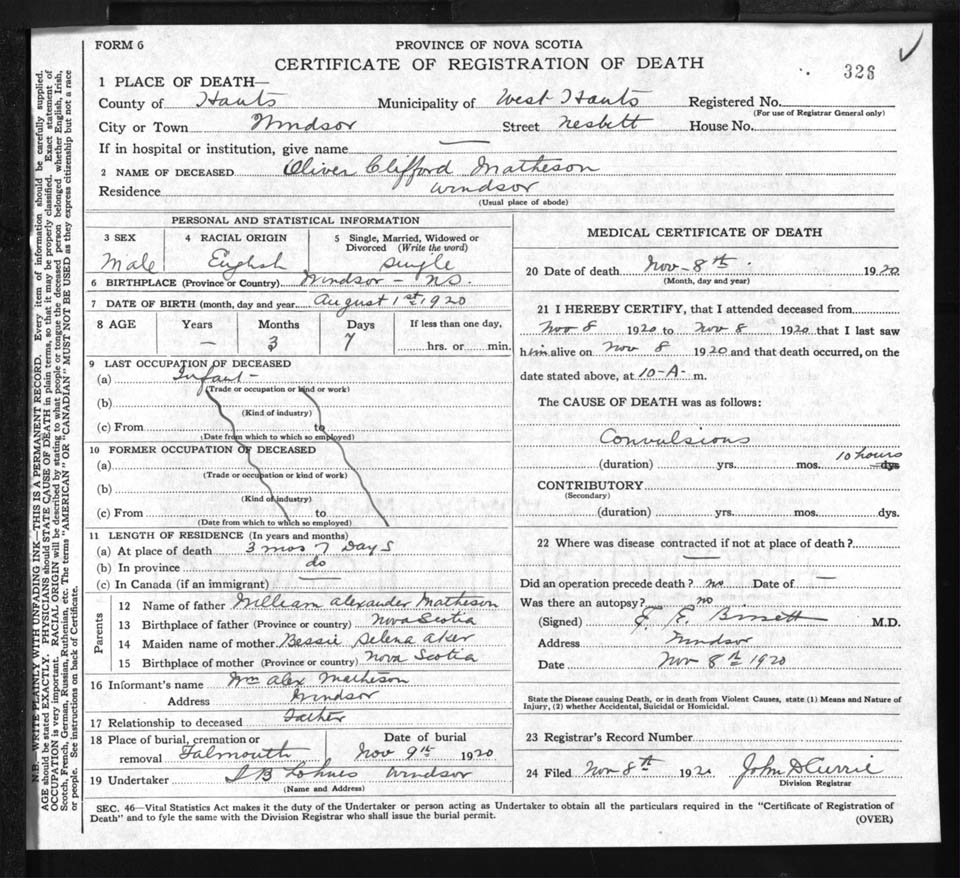 FORM 6
PROVINCE OF NOVA SCOTIA
CERTIFICATE OF REGISTRATION OF DEATH
326
1 PLACE OF DEATH—
County of Hants Municipality of West Hants Registered No.
(For use of Registrar General only)
City or Town Windsor Street Nesbitt House No.
If in hospital or institution, give name —
2 NAME OF DECEASED Oliver Clifford Matheson
Residence Windsor
(Usual place of abode)
PERSONAL AND STATISTICAL INFORMATION
3 SEX 4 RACIAL ORIGIN 5 Single, Married, Widowed or Divorced (Write the word)
Male English Single
6 BIRTHPLACE (Province or Country) Windsor - N.S.
7 DATE OF BIRTH (month, day and year) August 1st 1920
8 AGE Years Months Days If less than one day,
— 3 7 hrs. or min.
9 LAST OCCUPATION OF DECEASED
(a) Infant -
(Trade or occupation or kind or work)
(b)
(Kind of industry)
(c) From to
(Date from which to which so employed)
10 FORMER OCCUPATION OF DECEASED
(a)
(Trade or occupation or kind of work)
(b)
(Kind of industry)
(c) From to
(Date from which to which so employed)
11 LENGTH OF RESIDENCE (In years and months)
(a) At place of death 3 mos 7 Days
(b) In province do
(c) In Canada (if an immigrant) —
Parents
12 Name of father William Alexander Matheson
13 Birthplace of father (Province or country) Nova Scotia
14 Maiden name of mother Bessie Selena Aker
15 Birthplace of mother (Province or country) Nova Scotia
16 Informant's name Wm Alex Matheson
Address Windsor
17 Relationship to deceased Father
18 Place of burial, cremation or removal Falmouth Date of burial Nov 9th 1920
19 Undertaker Windsor
(Name and Address)
MEDICAL CERTIFICATE OF DEATH
20 Date of death Nov - 8th 1920
(Month, day and year)
21 I HEREBY CERTIFY, that I attended deceased from
Nov 8 1920 to Nov 8 1920 that I last saw
him alive on Nov 8 1920 and that death occurred, on the
date stated above, at 10-A- m.
The CAUSE OF DEATH was as follows:
Convulsions
(duration) yrs. mos. 10 hours dys
CONTRIBUTORY
(Secondary)
(duration) yrs. mos. dys.
22 Where was disease contracted if not at place of death?
—
Did an operation precede death? no Date of —
Was there an autopsy? no
(Signed) M.D.
Address Windsor
Date Nov 8th 1920
State the Disease causing Death, or in death from Violent Causes, state (1) Means and Nature of
Injury, (2) whether Accidental, Suicidal or Homicidal.
23 Registrar's Record Number
24 Filed Nov 8th 1920 John D Currie
Division Registrar
SEC. 46—Vital Statistics Act makes it the duty of the Undertaker or person acting as Undertaker to obtain all the particulars required in the "Certificate of Registration of
Death" and to fyle the same with the Division Registrar who shall issue the burial permit.
(OVER)
N.B. WRITE PLAINLY WITH UNFADING INK—THIS IS A PERMANENT RECORD. Every item of information should be carefully supplied.
AGE should be stated EXACTLY. PHYSICIANS should STATE CAUSE OF DEATH in plain terms, so that it may be properly classified. Exact statement of
OCCUPATION is very important. RACIAL ORIGIN will be described by stating to what people or tongue the deceased person belonged whether English, Irish,
Scotch, French, German, Russian, Ruthenian, etc. The terms "AMERICAN" OR "CANADIAN" MUST NOT BE USED as they express citizenship but not a race
or people. See instructions on back of Certificate.